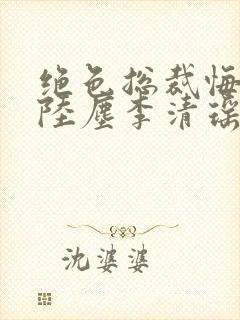 绝色总裁悔
陆尘李清瑶
沈婆婆